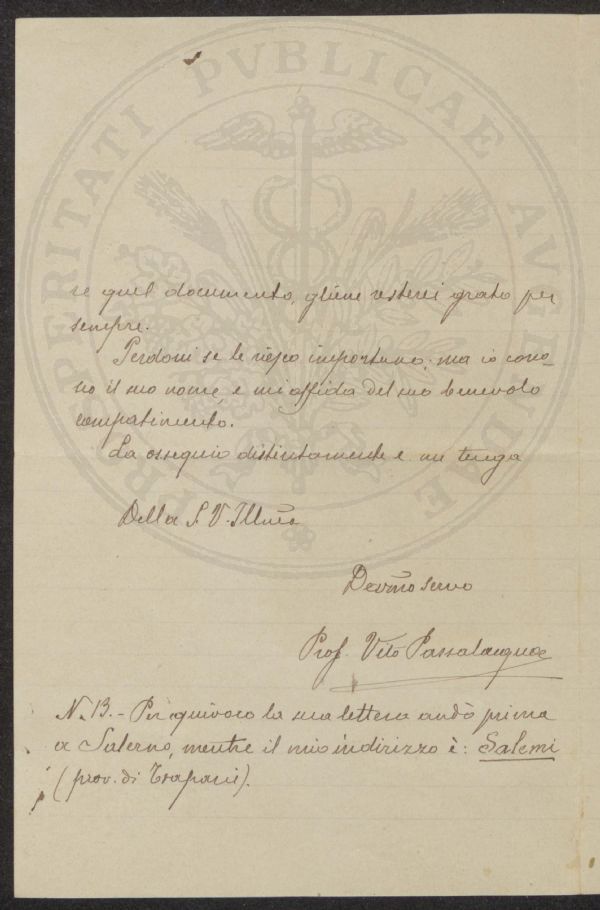 PROSPERITATI PVBLICAE AVGENDAE
re quel documento, gliene resterei grato per
sempre.
Perdoni se le riesco importuno; ma io cono-
sco il suo nome, e mi affida del suo benevolo
compatimento.
La ossequio distintamente e mi tenga
Della S. V. Illma
Devmo servo
Prof. Vito Passalacqua
N. B. - Per equivoco la sua lettera andò prima
a Salerno, mentre il mio indirizzo è: Salemi
(prov. di Trapani).